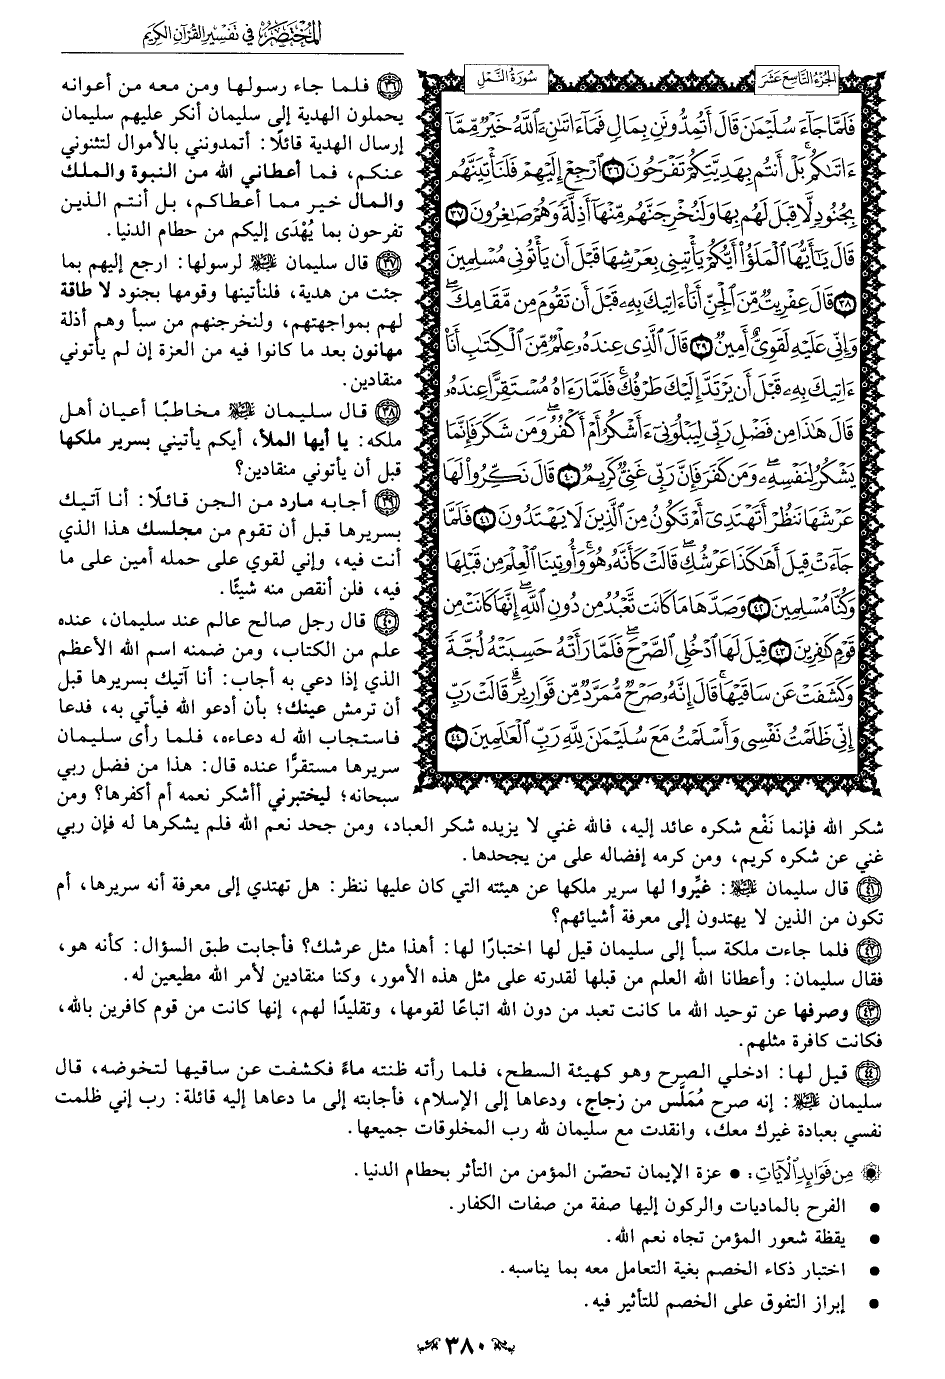 المختصر في تفسير القرآن الكريم
الجزء التاسع عشر
سورة النمل
فَلَمَّا جَآءَ سُلَيْمَٰنَ قَالَ أَتُمِدُّونَنِ بِمَالٍ فَمَآ ءَاتَىٰنِۦَ ٱللَّهُ خَيْرٌ مِّمَّآ
ءَاتَىٰكُمۚ بَلْ أَنتُم بِهَدِيَّتِكُمْ تَفْرَحُونَ ٣٦ ٱرْجِعْ إِلَيْهِمْ فَلَنَأْتِيَنَّهُم
بِجُنُودٍ لَّا قِبَلَ لَهُم بِهَا وَلَنُخْرِجَنَّهُم مِّنْهَآ أَذِلَّةً وَهُمْ صَٰغِرُونَ ٣٧
قَالَ يَٰٓأَيُّهَا ٱلْمَلَؤُا۟ أَيُّكُمْ يَأْتِينِى بِعَرْشِهَا قَبْلَ أَن يَأْتُونِى مُسْلِمِينَ
٣٨ قَالَ عِفْرِيتٌ مِّنَ ٱلْجِنِّ أَنَا۠ ءَاتِيكَ بِهِۦ قَبْلَ أَن تَقُومَ مِن مَّقَامِكَۖ
وَإِنِّى عَلَيْهِ لَقَوِىٌّ أَمِينٌ ٣٩ قَالَ ٱلَّذِى عِندَهُۥ عِلْمٌ مِّنَ ٱلْكِتَٰبِ أَنَا۠
ءَاتِيكَ بِهِۦ قَبْلَ أَن يَرْتَدَّ إِلَيْكَ طَرْفُكَۚ فَلَمَّا رَءَاهُ مُسْتَقِرًّا عِندَهُۥ
قَالَ هَٰذَا مِن فَضْلِ رَبِّى لِيَبْلُوَنِىٓ ءَأَشْكُرُ أَمْ أَكْفُرُۖ وَمَن شَكَرَ فَإِنَّمَا
يَشْكُرُ لِنَفْسِهِۦۖ وَمَن كَفَرَ فَإِنَّ رَبِّى غَنِىٌّ كَرِيمٌ ٤٠ قَالَ نَكِّرُوا۟ لَهَا
عَرْشَهَا نَنظُرْ أَتَهْتَدِىٓ أَمْ تَكُونُ مِنَ ٱلَّذِينَ لَا يَهْتَدُونَ ٤١ فَلَمَّا
جَآءَتْ قِيلَ أَهَٰكَذَا عَرْشُكِۖ قَالَتْ كَأَنَّهُۥ هُوَۚ وَأُوتِينَا ٱلْعِلْمَ مِن قَبْلِهَا
وَكُنَّا مُسْلِمِينَ ٤٢ وَصَدَّهَا مَا كَانَت تَّعْبُدُ مِن دُونِ ٱللَّهِۖ إِنَّهَا كَانَتْ مِن
قَوْمٍ كَٰفِرِينَ ٤٣ قِيلَ لَهَا ٱدْخُلِى ٱلصَّرْحَۖ فَلَمَّا رَأَتْهُ حَسِبَتْهُ لُجَّةً
وَكَشَفَتْ عَن سَاقَيْهَاۚ قَالَ إِنَّهُۥ صَرْحٌ مُّمَرَّدٌ مِّن قَوَارِيرَۗ قَالَتْ رَبِّ
إِنِّى ظَلَمْتُ نَفْسِى وَأَسْلَمْتُ مَعَ سُلَيْمَٰنَ لِلَّهِ رَبِّ ٱلْعَٰلَمِينَ ٤٤
٣٦ فلما جاء رسولها ومن معه من أعوانه
يحملون الهدية إلى سليمان أنكر عليهم سليمان
إرسال الهدية قائلًا: أتمدونني بالأموال لتثنوني
عنكم، فما أعطاني الله من النبوة والملك
والمال خير مما أعطاكم، بل أنتم الذين
تفرحون بما يُهْدَى إليكم من حطام الدنيا.
٣٧ قال سليمان ﵇ لرسولها: ارجع إليهم بما
جئت من هدية، فلنأتينها وقومها بجنود لا طاقة
لهم بمواجهتهم، ولنخرجنهم من سبأ وهم أذلة
مهانون بعد ما كانوا فيه من العزة إن لم يأتوني
منقادين.
٣٨ قال سليمان ﵇ مخاطبًا أعيان أهل
ملكه: يا أيها الملأ، أيكم يأتيني بسرير ملكها
قبل أن يأتوني منقادين؟
٣٩ أجابه مارد من الجن قائلًا: أنا آتيك
بسريرها قبل أن تقوم من مجلسك هذا الذي
أنت فيه، وإني لقوي على حمله أمين على ما
فيه، فلن أنقص منه شيئًا.
٤٠ قال رجل صالح عالم عند سليمان، عنده
علم من الكتاب، ومن ضمنه اسم الله الأعظم
الذي إذا دعي به أجاب: أنا آتيك بسريرها قبل
أن ترمش عينك؛ بأن أدعو الله فيأتي به، فدعا
فاستجاب الله له دعاءه، فلما رأى سليمان
سريرها مستقرًّا عنده قال: هذا من فضل ربي
سبحانه؛ ليختبرني أأشكر نعمه أم أكفرها؟ ومن
شكر الله فإنما نَفْع شكره عائد إليه، فالله غني لا يزيده شكر العباد، ومن جحد نعم الله فلم يشكرها له فإن ربي
غني عن شكره كريم، ومن كرمه إفضاله على من يجحدها.
٤١ قال سليمان ﵇: غيِّروا لها سرير ملكها عن هيئته التي كان عليها ننظر: هل تهتدي إلى معرفة أنه سريرها، أم
تكون من الذين لا يهتدون إلى معرفة أشيائهم؟
٤٢ فلما جاءت ملكة سبأ إلى سليمان قيل لها اختبارًا لها: أهذا مثل عرشك؟ فأجابت طبق السؤال: كأنه هو،
فقال سليمان: وأعطانا الله العلم من قبلها لقدرته على مثل هذه الأمور، وكنا منقادين لأمر الله مطيعين له.
٤٣ وصرفها عن توحيد الله ما كانت تعبد من دون الله اتباعًا لقومها، وتقليدًا لهم، إنها كانت من قوم كافرين بالله،
فكانت كافرة مثلهم.
٤٤ قيل لها: ادخلي الصرح وهو كهيئة السطح، فلما رأته ظنته ماءً فكشفت عن ساقيها لتخوضه، قال
سليمان ﵇: إنه صرح مُمَلَّس من زجاج، ودعاها إلى الإسلام، فأجابته إلى ما دعاها إليه قائلة: رب إني ظلمت
نفسي بعبادة غيرك معك، وانقدت مع سليمان لله رب المخلوقات جميعها.
من فوائد الآيات: • عزة الإيمان تحصّن المؤمن من التأثر بحطام الدنيا.
• الفرح بالماديات والركون إليها صفة من صفات الكفار.
• يقظة شعور المؤمن تجاه نعم الله.
• اختبار ذكاء الخصم بغية التعامل معه بما يناسبه.
• إبراز التفوق على الخصم للتأثير فيه.
٣٨٠